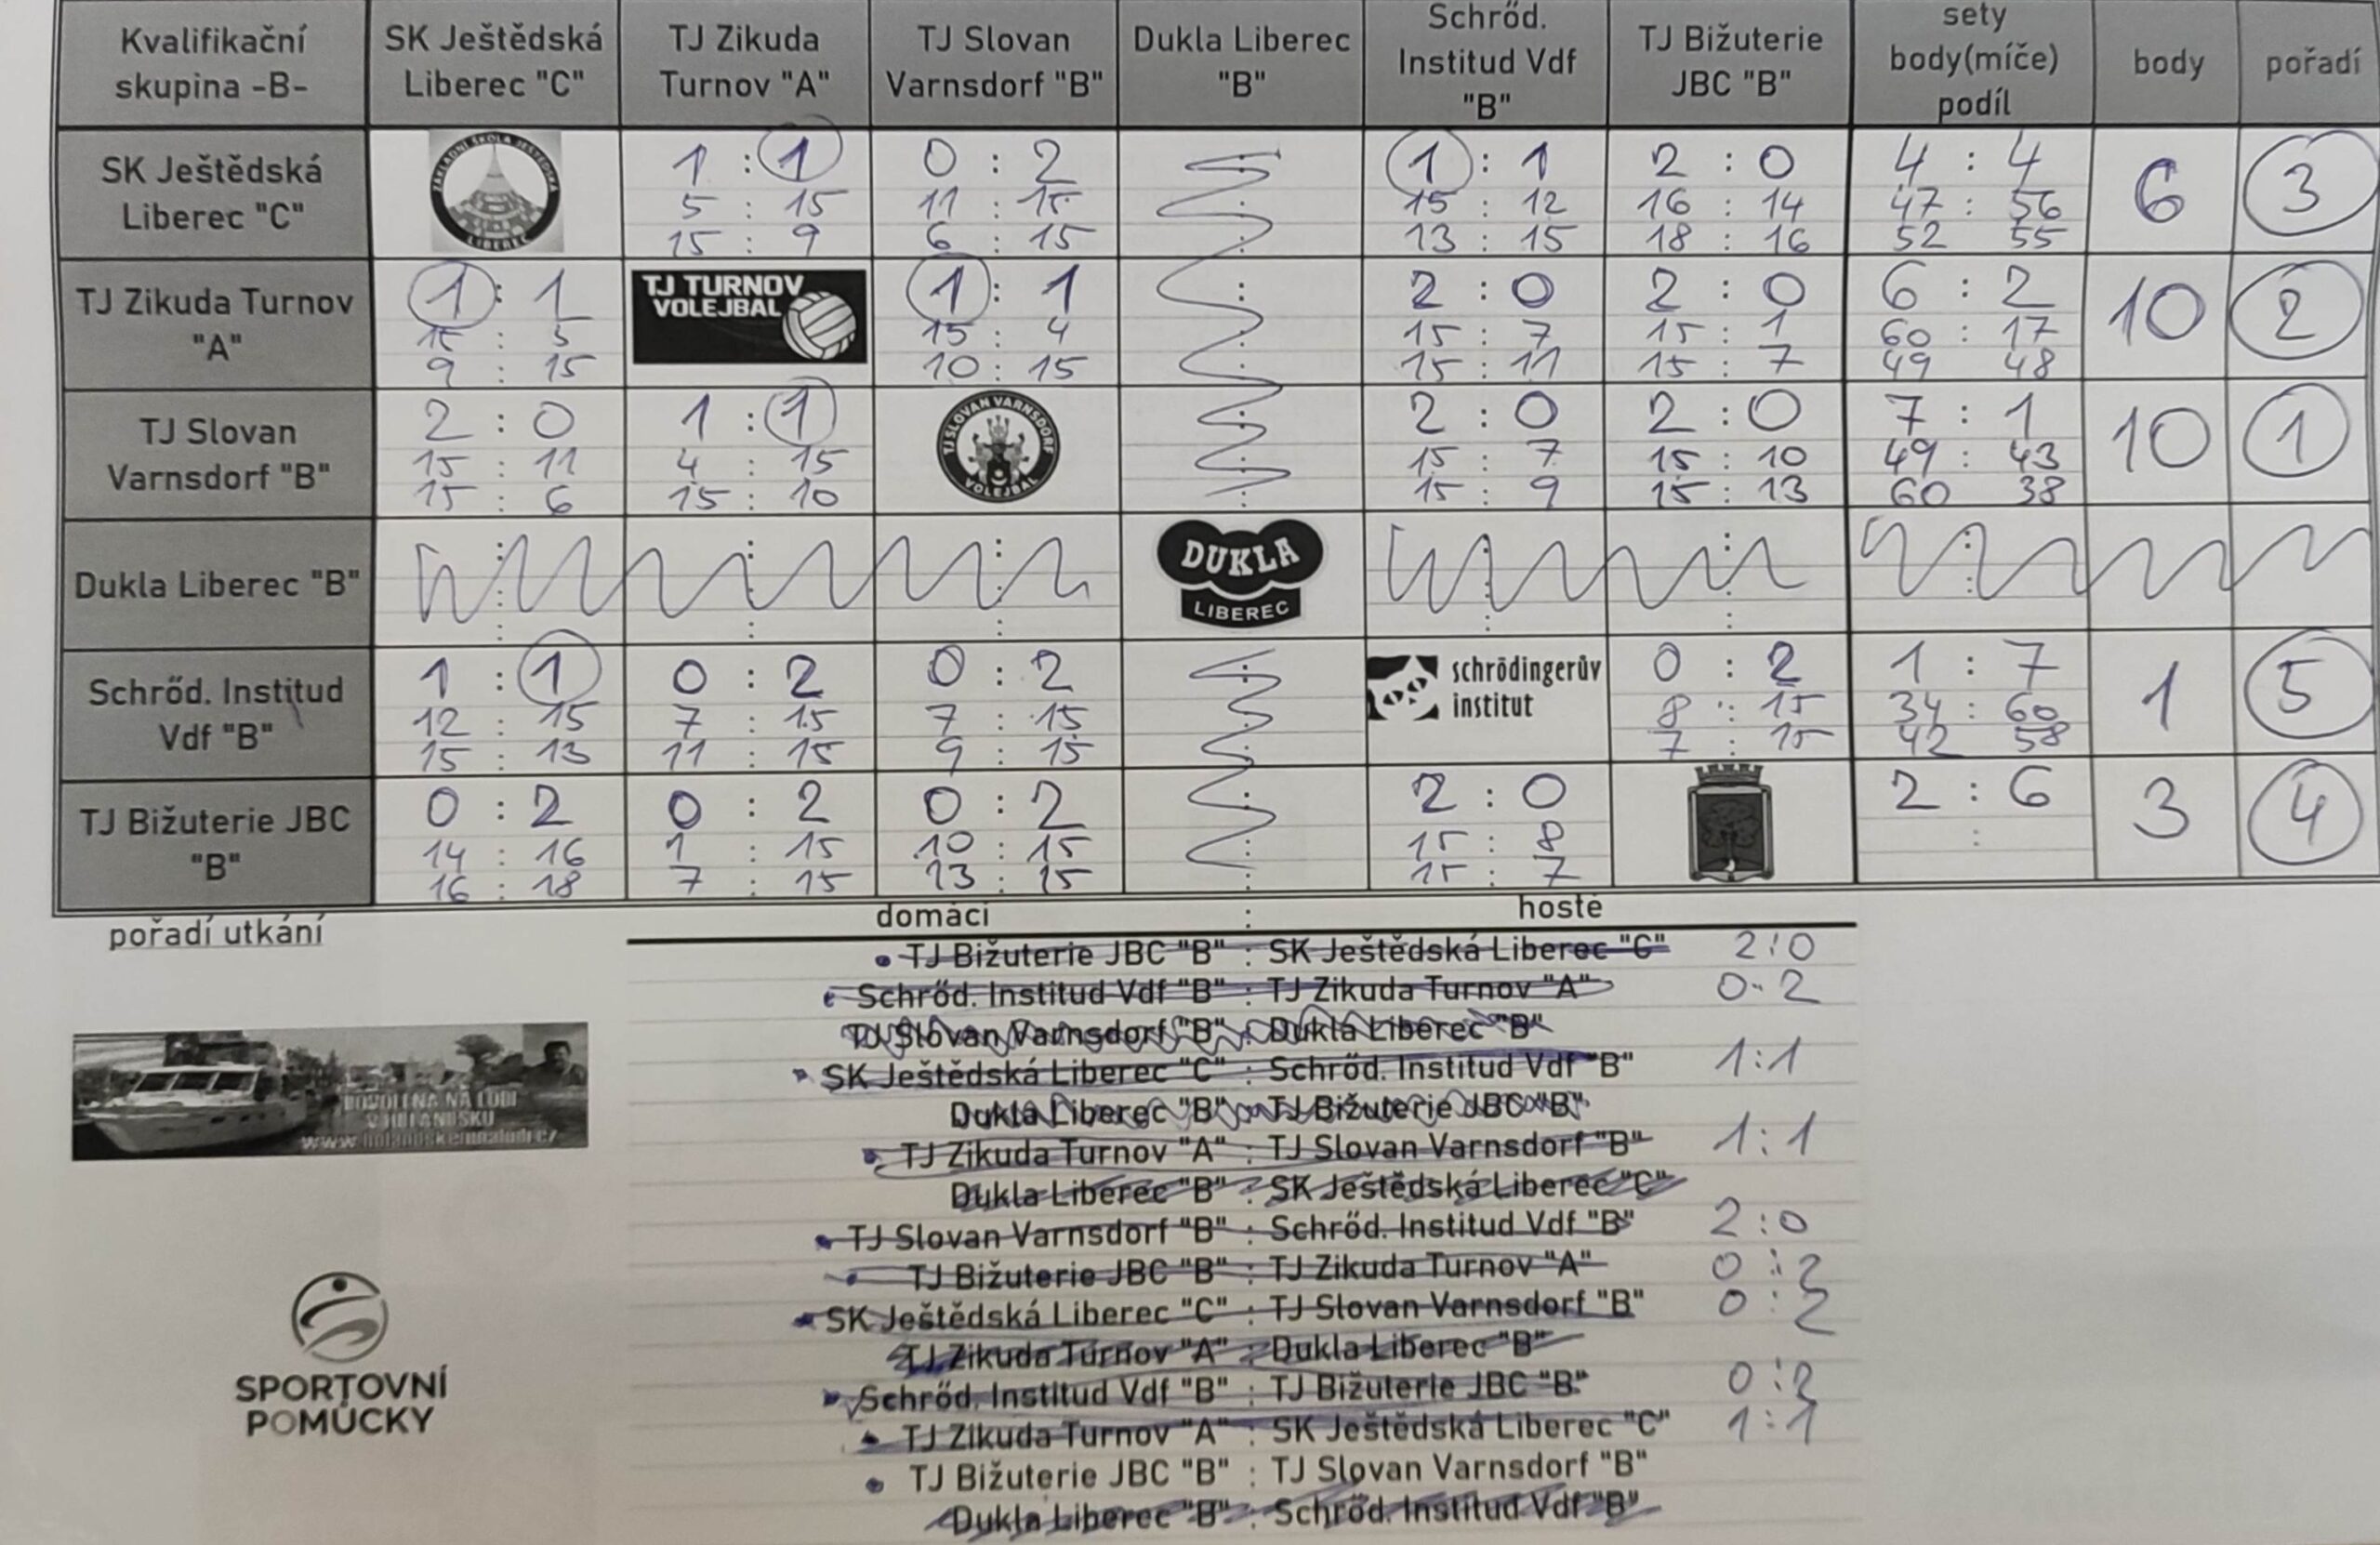 Kvalifikační skupina -B-
SK Ještědská Liberec "C"
TJ Zikuda Turnov "A"
TJ Slovan Varnsdorf "B"
Dukla Liberec "B"
Schrőd. Institud Vdf "B"
TJ Bižuterie JBC "B"
sety body(míče) podíl
body
pořadí
SK Ještědská Liberec "C"
ZÁKLADNÍ ŠKOLA JEŠTĚDSKÁ LIBEREC
1 : 1 0 : 2 1 : 1 2 : 0 4 : 4 6 3
5 : 15 11 : 15 15 : 12 16 : 14 47 : 56
15 : 9 6 : 15 13 : 15 18 : 16 52 55
TJ Zikuda Turnov "A"
TJ TURNOV VOLEJBAL
1 : 1 1 : 1 2 : 0 2 : 0 6 : 2 10 2
15 : 5 15 : 4 15 : 7 15 : 1 60 : 17
9 : 15 10 : 15 15 : 11 15 : 7 49 48
TJ Slovan Varnsdorf "B"
TJ SLOVAN VARNSDORF VOLEJBAL
2 : 0 1 : 1 2 : 0 2 : 0 7 : 1 10 1
15 : 11 4 : 15 15 : 7 15 : 10 49 : 43
15 : 6 15 : 10 15 : 9 15 : 13 60 38
Dukla Liberec "B"
DUKLA LIBEREC
Schrőd. Institud Vdf "B"
schrödingerův institut
1 : 1 0 : 2 0 : 2 0 : 2 1 : 7 1 5
12 : 15 7 : 15 7 : 15 8 : 15 34 : 60
15 : 13 11 : 15 9 : 15 7 : 15 42 58
TJ Bižuterie JBC "B"
0 : 2 0 : 2 0 : 2 2 : 0 2 : 6 3 4
14 : 16 1 : 15 10 : 15 15 : 8
16 : 18 7 : 15 13 : 15 15 : 7
pořadí utkání
domácí : hosté
TJ Bižuterie JBC "B" : SK Ještědská Liberec "C" 2:0
Schrőd. Institud Vdf "B" : TJ Zikuda Turnov "A" 0-2
TJ Slovan Varnsdorf "B" : Dukla Liberec "B"
SK Ještědská Liberec "C" : Schrőd. Institud Vdf "B" 1:1
Dukla Liberec "B" : TJ Bižuterie JBC "B"
TJ Zikuda Turnov "A" : TJ Slovan Varnsdorf "B" 1:1
Dukla Liberec "B" : SK Ještědská Liberec "C"
TJ Slovan Varnsdorf "B" : Schrőd. Institud Vdf "B" 2:0
TJ Bižuterie JBC "B" : TJ Zikuda Turnov "A" 0:2
SK Ještědská Liberec "C" : TJ Slovan Varnsdorf "B" 0:2
TJ Zikuda Turnov "A" : Dukla Liberec "B"
Schrőd. Institud Vdf "B" : TJ Bižuterie JBC "B" 0:2
TJ Zikuda Turnov "A" : SK Ještědská Liberec "C" 1:1
TJ Bižuterie JBC "B" : TJ Slovan Varnsdorf "B"
Dukla Liberec "B" : Schrőd. Institud Vdf "B"
DOVOLENÁ NA LODI
V HOLANDSKU
SPORTOVNÍ
POMŮCKY